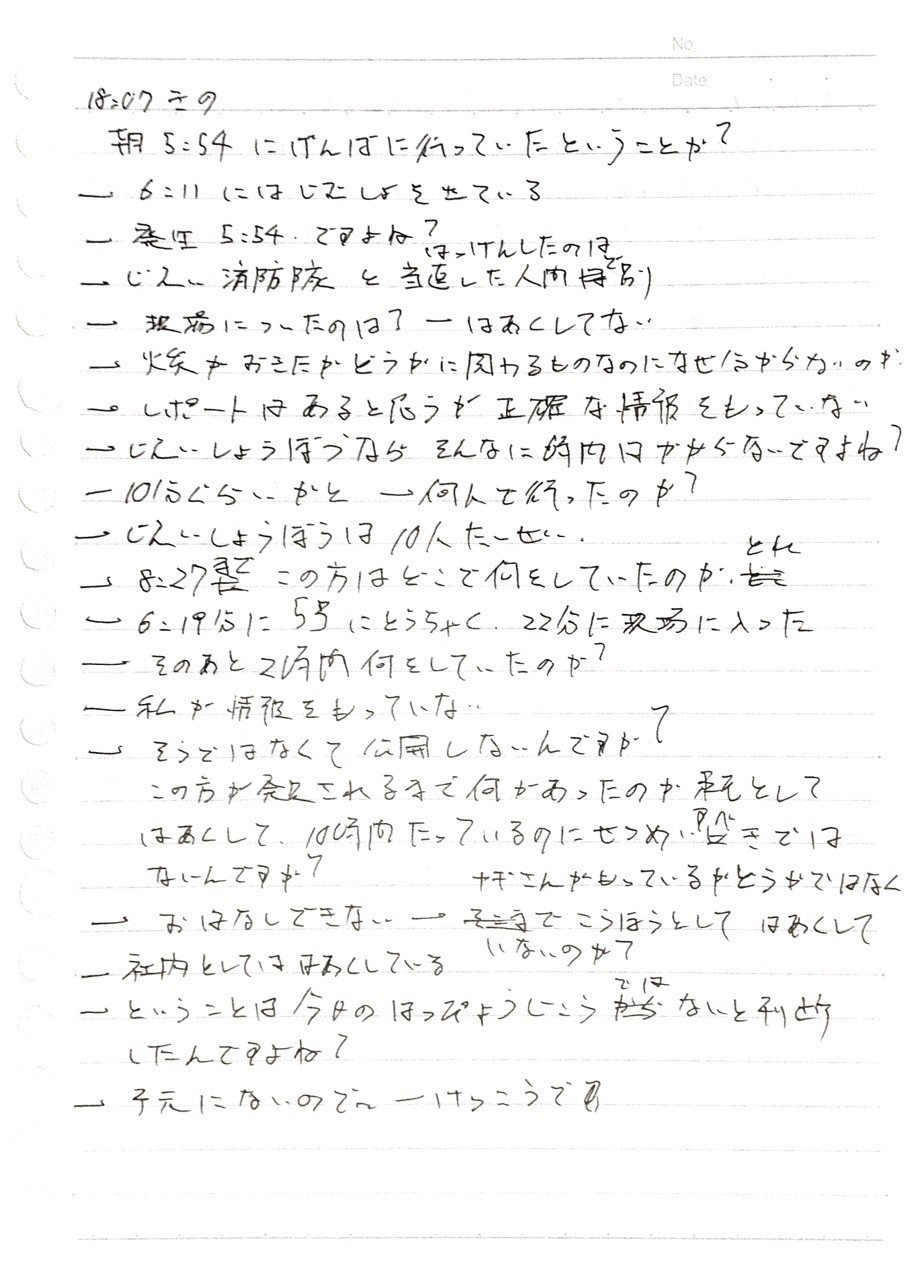 No.
Date
18:07 きの
朝 5:54 にげんばに行っていたということか?
→ 6:11 にはじむしょを出ている
→ 発生 5:54. ですよね?
はっけんしたのは
→ じえい 消防隊 と 当直した人間 で別
→ 現場についたのは? → はあくしてない
→ 火災がおきたかどうかに関わるものなのになぜ分からないのか.
→ レポートはあると思うが 正確な情報をもっていない
→ じえいしょうぼうなら そんなに時間はかからないですよね?
→ 10分ぐらいかと → 何人で行ったのか?
→ じえいしょうぼうは 10人たいせい.
→ 8:27まで この方はどこで何をしていたのか. とれ
→ 6:19分に 5号 にとうちゃく. 22分に現場に入った
→ そのあと2時間何をしていたのか?
→ 私が情報をもっていない
→ そうではなくて公開しないんですか?
この方が発見されるまで何があったのか 東電として
はあくして. 10時間たっているのにせつめいすべきでは
ないんですか?
さんがもっているかどうかではなく
→ おはなしできない → こうほうとして はあくして
いないのか?
→ 社内としてははあくしている
→ ということは今日のはっぴょうじこうではないと判断
したんですよね?
→ 手元にないので〜 → けっこうです